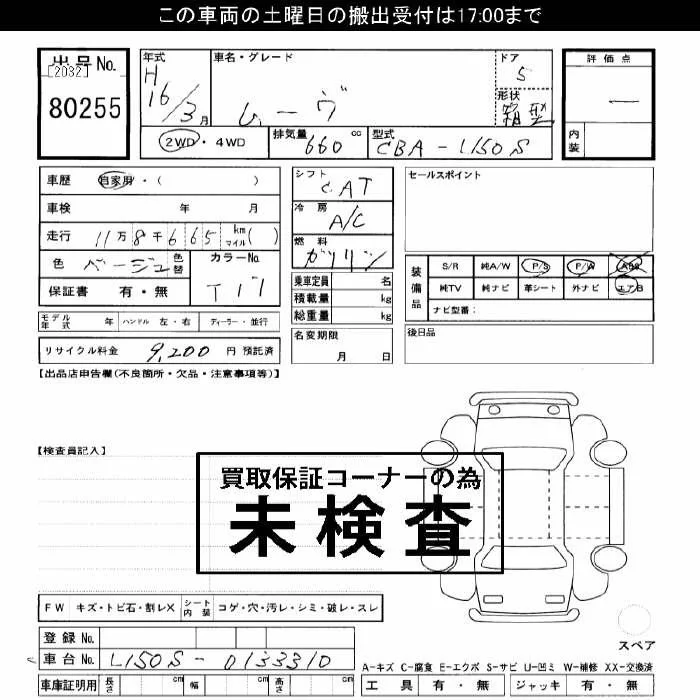 この車両の土曜日の搬出受付は17:00まで
出品No. 年式 車名・グレード ドア 評価点
[2032] H 5
80255 16/3月 ムーヴ 形状 箱型
2WD・4WD 排気量 660 cc 型式 CBA-L150S 内装
車歴 自家用・( ) シフト CAT セールスポイント
車検 年 月 冷房 A/C
走行 11万8千665 km マイル( ) 燃料 ガソリン
色 ベージュ 色替 カラーNo. T17
装備品 S/R 純A/W P/S P/W ABS
純TV 純ナビ 革シート 外ナビ エアB
ナビ型番:
保証書 有・無
乗車定員 名
積載量 kg
総重量 kg
モデル年式 年 ハンドル 左・右 ディーラー・並行
名変期限 月 日
後日品
リサイクル料金 9,200 円 預託済
【出品店申告欄(不良箇所・欠品・注意事項等)】
【検査員記入】
買取保証コーナーの為
未検査
FW キズ・トビ石・割レX シート内装 コゲ・穴・汚レ・シミ・破レ・スレ
登録No.
スペア
車台No. L150S-0133310
A-キズ C-腐食 E-エクボ S-サビ U-凹ミ W-補修 XX-交換済
車庫証明用 長さ cm 幅 cm 高さ cm
工具 有・無 ジャッキ 有・無